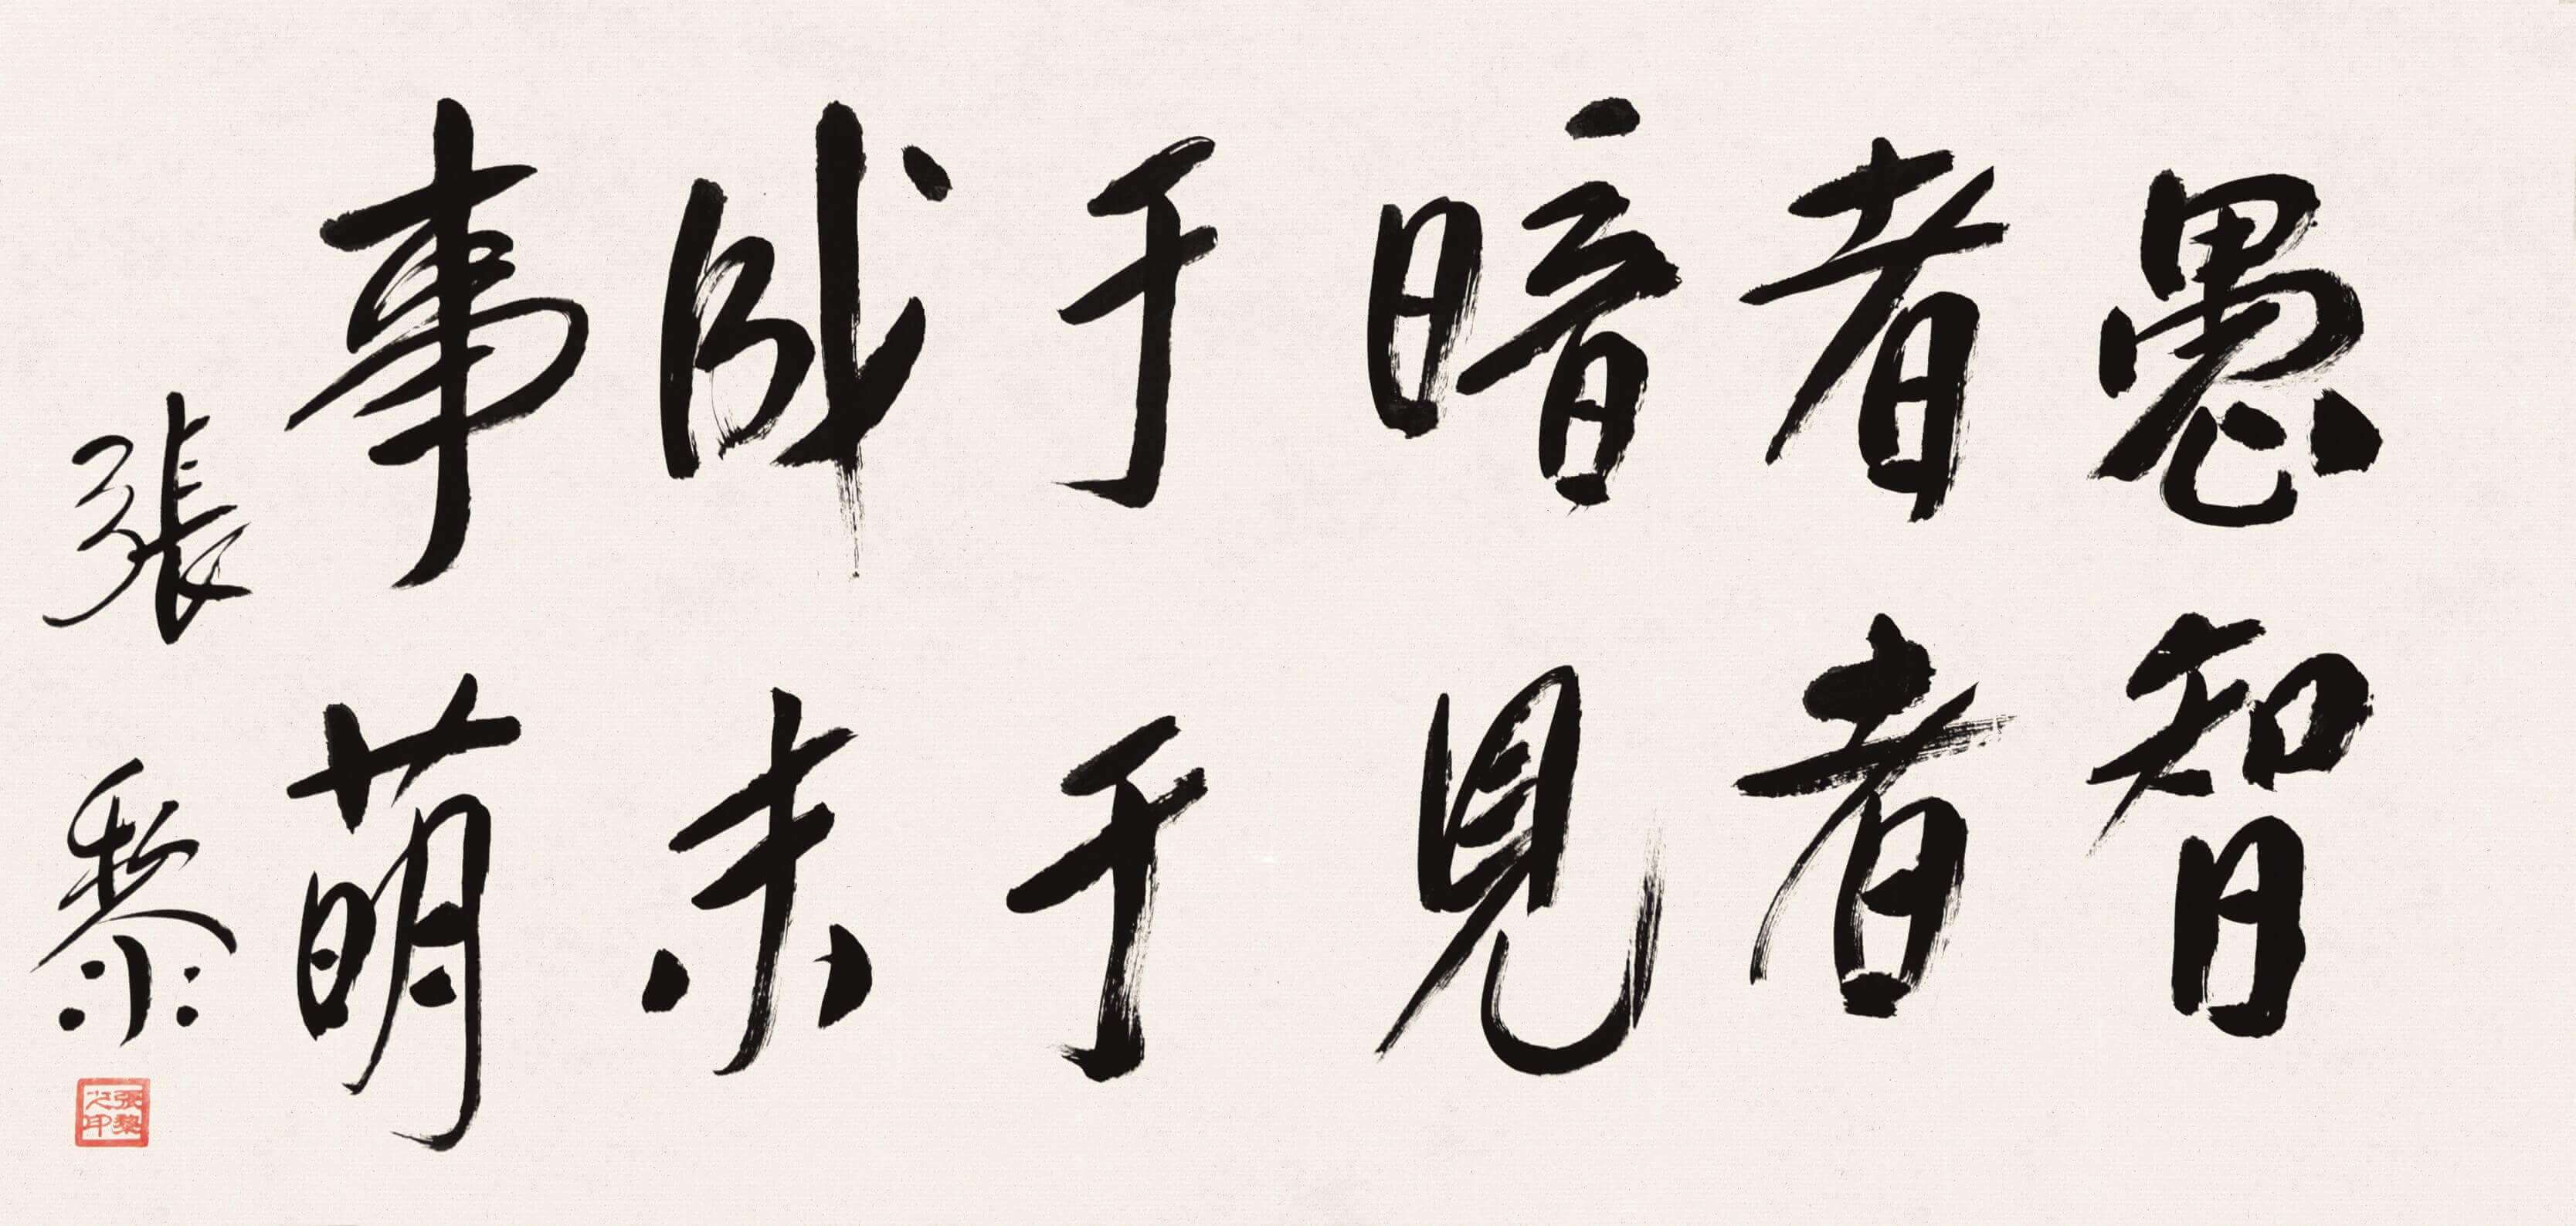 愚者暗于成事
智者見于未萌
張黎
張黎之印